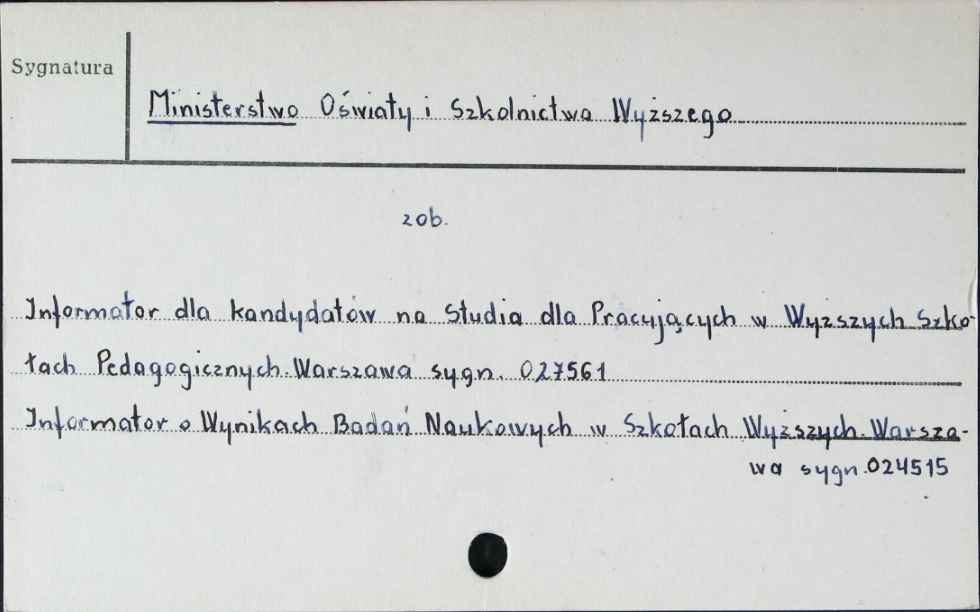 Sygnatura
Ministerstwo Oświaty i Szkolnictwa Wyższego
zob.
Informator dla kandydatów na Studia dla Pracujących w Wyższych Szko-
łach Pedagogicznych. Warszawa sygn. 027561
Informator o Wynikach Badań Naukowych w Szkołach Wyższych. Warsza-
wa sygn. 024515